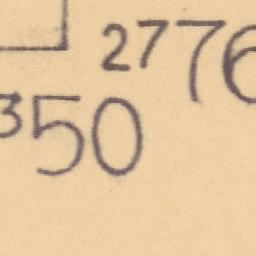 2776
350